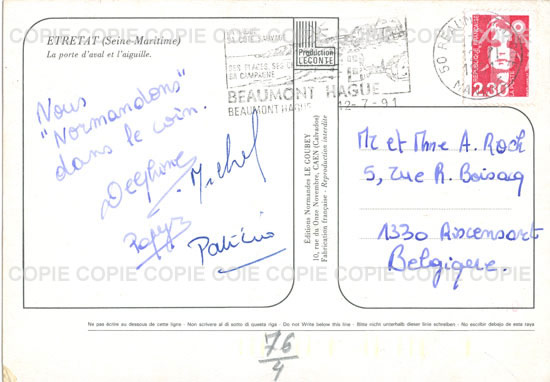 ETRETAT (Seine-Maritime)
La porte d'aval et l'aiguille.
Nous
"Normandons"
dans le coin.
Delphine
Michel
Papy
Patricio
Production
LECONTE
SES PLAGES SES
SA CAMPAGNE
BEAUMONT HAGUE
BEAUMONT HAGUE
12-7-91
50 BEAUM
2,30
Editions Normandes LE GOUBEY
10, rue du Onze Novembre, CAEN (Calvados)
Fabrication française - Reproduction interdite
Mr et Mme A. Roch
5, rue R. Boisacq
1330 Rixensart
Belgique.
COPIE COPIE COPIE COPIE COPIE COPIE COPIE COPIE
Ne pas écrire au dessous de cette ligne - Non scrivere al di sotto di questa riga - Do not Write below this line - Bitte nicht unterhalb dieser linie schreiben - No escribir debajo de esta raya
76/4